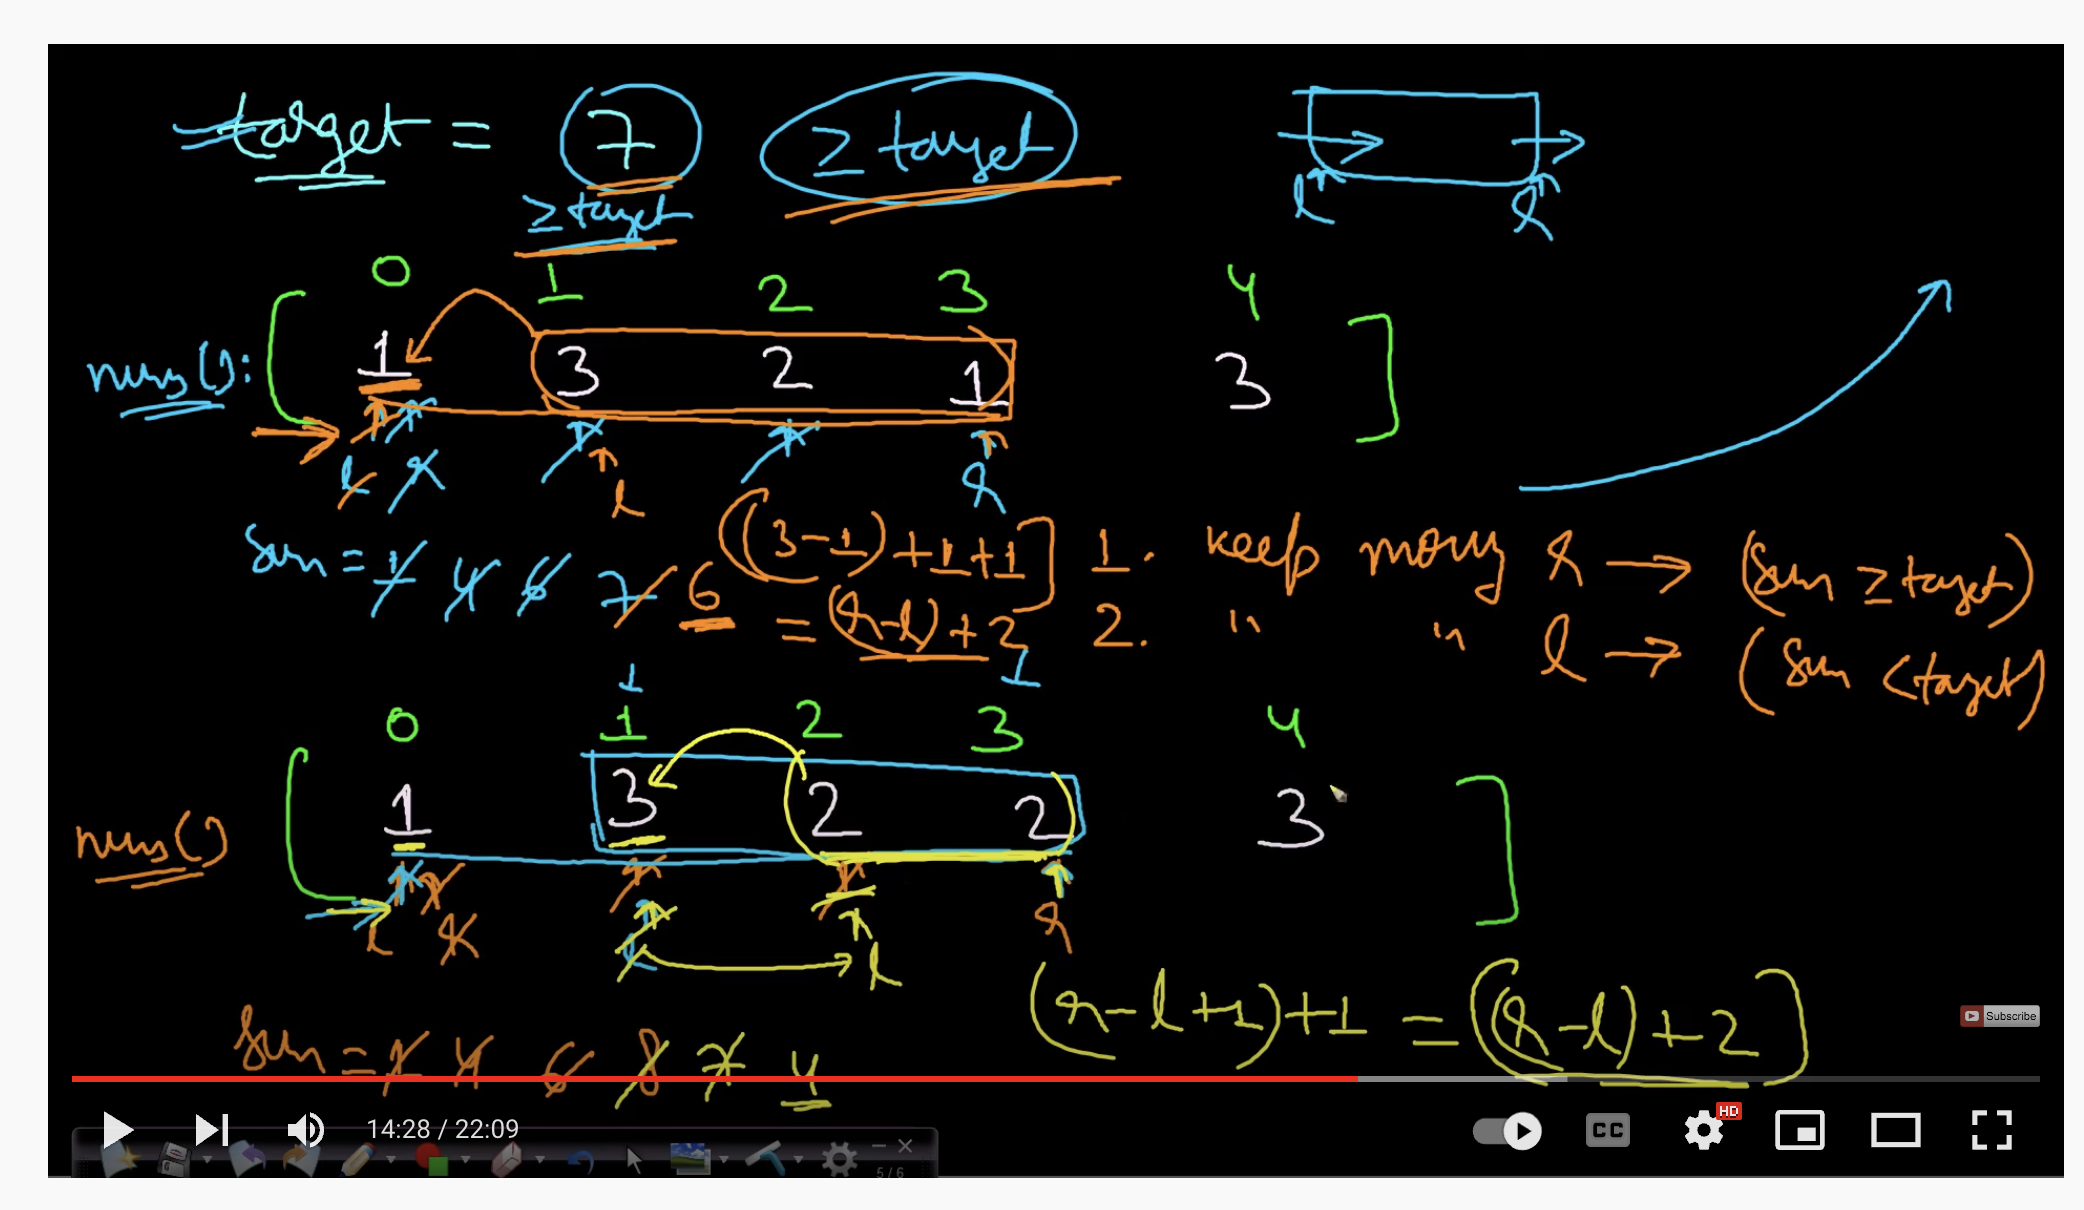 target = 7 ≥ target
≥ target
l r
0 1 2 3 4
nums(): [ 1 3 2 1 3 ]
l r l r
sum = 1 4 6 7 6 ((3-1)+1+1]
= (r-l)+2
1. keep moving r → (sum ≥ target)
2. " " l → (sum < target)
1 1
0 1 2 3 4
nums() [ 1 3 2 2 3 ]
l r l l r
sum = 1 4 6 8 7 4
(r-l+1)+1 = ((r-l)+2)
Subscribe
14:28 / 22:09
CC
HD
5 / 6